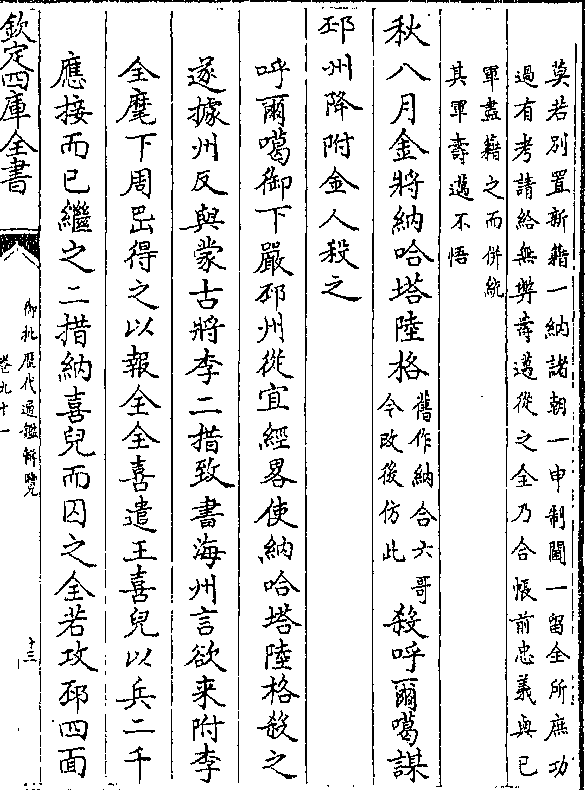 莫若別置新籍一納諸朝一申制閫一留全所庶功
過有考請給無弊壽邁從之全乃合帳前忠義與已
軍盡籍之而併統
其軍壽邁不悟
秋八月金將納哈塔陸格舊作納合六哥今改後仿此殺呼爾噶謀
邳州降附金人殺之
呼爾噶御下嚴邳州從宜經畧使納哈塔陸格殺之
遂據州反與蒙古將李二措致書海州言欲來附李
全麾下周岊得之以報全全喜遣王喜兒以兵二千
應接而已繼之二措納喜兒而囚之全若攻邳四面
欽定四庫全書
御批歷代通鑑輯覽
卷九十一
十三